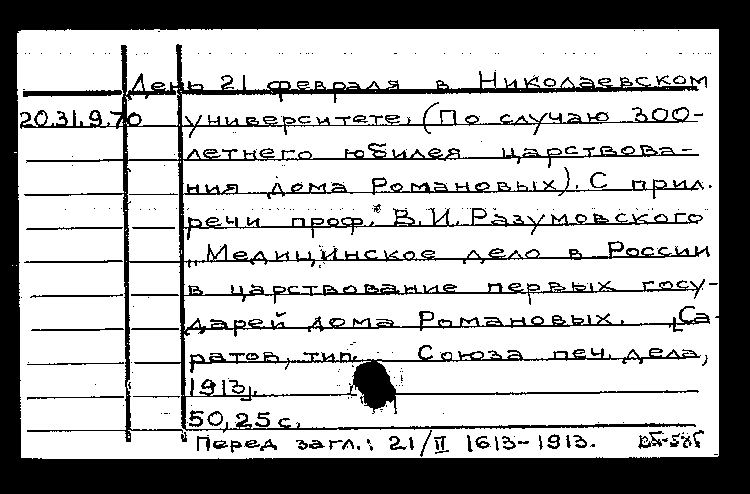 День 21 февраля в Николаевском
20.31.9.70 университете. (По случаю 300-
летнего юбилея царствова-
ния дома Романовых). С прил.
речи проф. В.И. Разумовского
„Медицинское дело в России
в царствование первых госу-
дарей дома Романовых. [Са-
ратов, тип. Союза печ. дела,
1913].
50,25 с.
Перед загл.: 21/II 1613-1913.